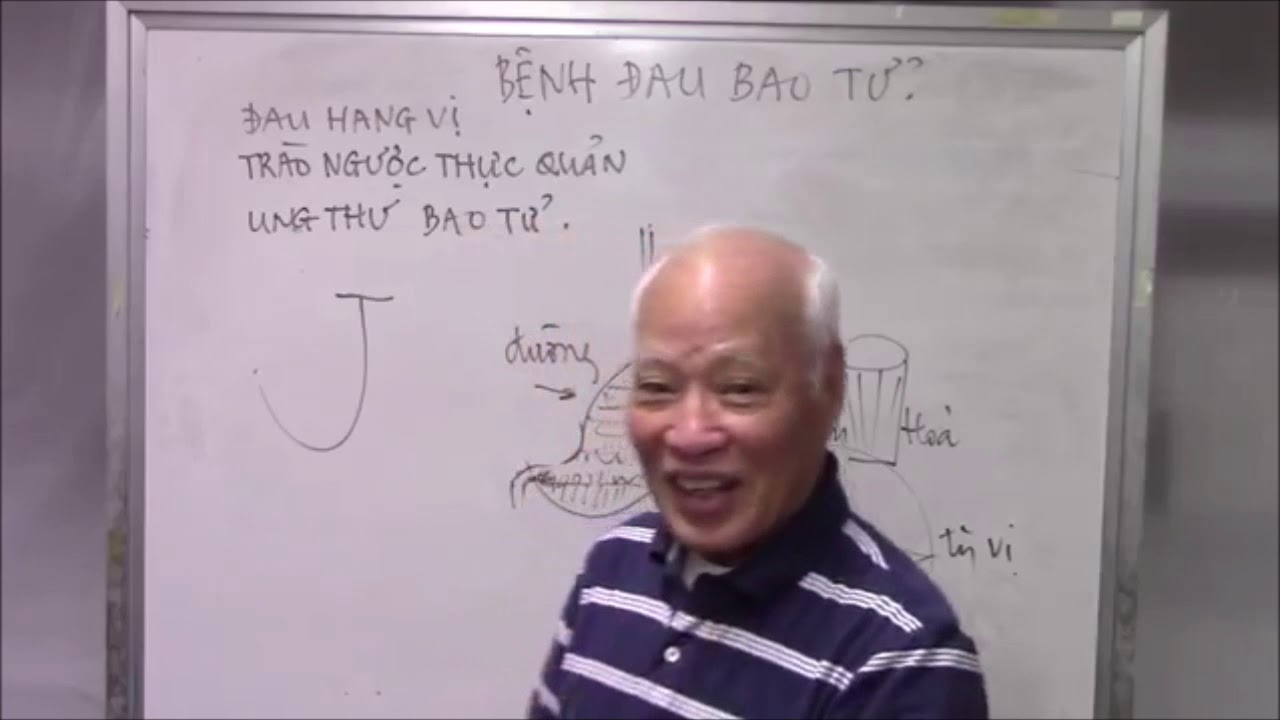 BỆNH ĐAU BAO TỬ?
ĐAU HANG VỊ
TRÀO NGƯỢC THỰC QUẢN
UNG THƯ BAO TỬ.
J
đường
Hoả
tỳ vị